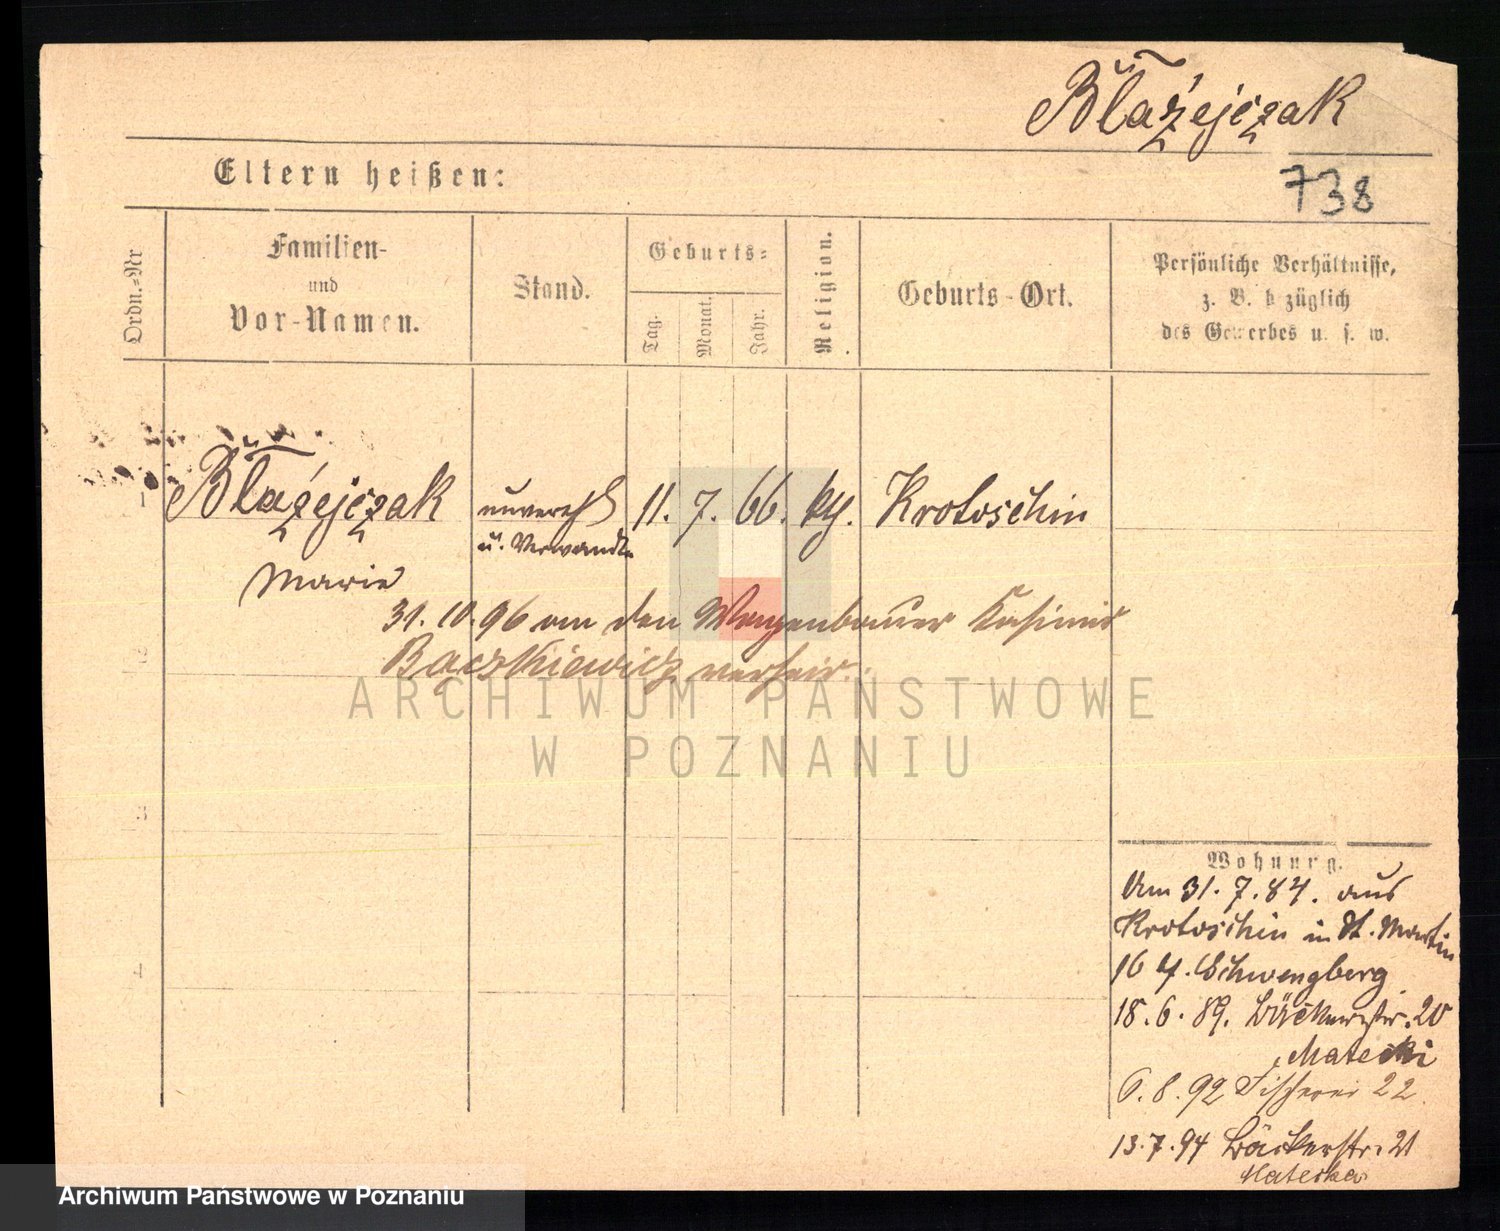 Błażejczak
Eltern heißen:
738
Ordn.=Nr
Familien-
und
Vor-Namen.
Stand.
Geburts=
Tag.
Monat.
Jahr.
Religion.
Geburts-Ort.
Persönliche Verhältnisse,
z. B. bezüglich
des Gewerbes u. s. w.
1
Błażejczak
unvereh.
11. 7. 66. kth. Krotoschin
u. Verwandte
Marie
31. 10. 96 an den Wagenbauer Kasimir
verheir.
2
3
4
Wohnung.
Am 31. 7. 84. aus
Krotoschin in St. Martin
16 4. Schwengberg
18. 6. 89. Bäckerstr. 20
Matecki
6. 8. 92 Fischerei 22
13. 7. 94 Bäckerstr. 21
Matecka
ARCHIWUM PAŃSTWOWE
W POZNANIU
Archiwum Państwowe w Poznaniu